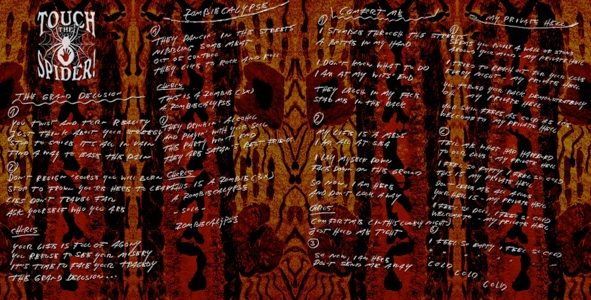 TOUCH
THE
SPIDER!
THE GRAND DELUSION
①
YOU TWIST AND TURN REALITY
JUST THINK ABOUT YOUR STRATEGY
STOP TO SMILE IT'S ALL IN VAIN
FIND A WAY TO EASE THIS PAIN
②
DON'T RESIGN 'CAUSE YOU WILL BURN
STOP TO
LIES DON'T TRAVEL FAR
ASK YOURSELF WHO YOU ARE
CHORIS
YOUR LIFE IS FULL OF AGONY
YOU REFUSE TO SEE YOUR MISERY
IT'S TIME TO FACE YOUR TRAGEDY
THE GRAND DELUSION...
ZOMBIECALYPSE
①
THEY DANCIN' IN THE STREETS
NIBBLING SOME MEAT
OUT OF CONTROL
THEY LIKE TO ROCK AND ROLL
CHORIS
THIS IS A ZOMBIE (3X)
A ZOMBIECALYPSE
②
THEY DRINKIN' ALCOHOL
AND PLAYIN' WITH YOUR
THIS PARTY WON'T END
THEY ARE SATAN'S BEST FRIENDS
CHORIS
THIS IS A ZOMBIE (3X)
A ZOMBIECALYPSE
- SOLO -
ZOMBIECALYPSE
COMFORT ME
①
I STUMBLE THROUGH THE STREETS
A BOTTLE IN MY HAND
I DON'T KNOW WHAT TO DO
I AM AT MY WITS' END
THEY LAUGH IN MY FACE
STAB ME IN THE BACK
②
MY LIFE IS A MESS
I AM ALL AT SEA
I LAY MYSELF DOWN
FACE DOWN ON THE GROUND
SO NOW, I AM HERE
AND DON'T LOOK AWAY
CHORIS
COMFORT ME (IN THIS LONELY NIGHT)
JUST HOLD ME TIGHT
③
SO NOW, I AM HERE
DON'T SEND ME AWAY
MY PRIVATE HELL
①
YOU BUILT A WALL OF STONE
AROUND MY PRIVATE HELL
I TRIED TO REACH OUT FOR YOUR
EVERY NIGHT
MY PRIVATE HELL
YOUR SKIN FEELS AS COLD AS ICE
WELCOME TO MY PRIVATE HELL
②
TELL ME WHAT HAD HAPPENED
MY PRIVATE HELL
I FEEL SO COLD, I FEEL SO COLD
THIS IS MY PRIVATE HELL
DON'T LEAVE ME ALL ALONE
MY PRIVATE HELL
I FEEL SO COLD, I FEEL SO COLD
WELCOME TO MY PRIVATE HELL
I FEEL SO EMPTY, I FEEL SO COLD
COLD
COLD
COLD